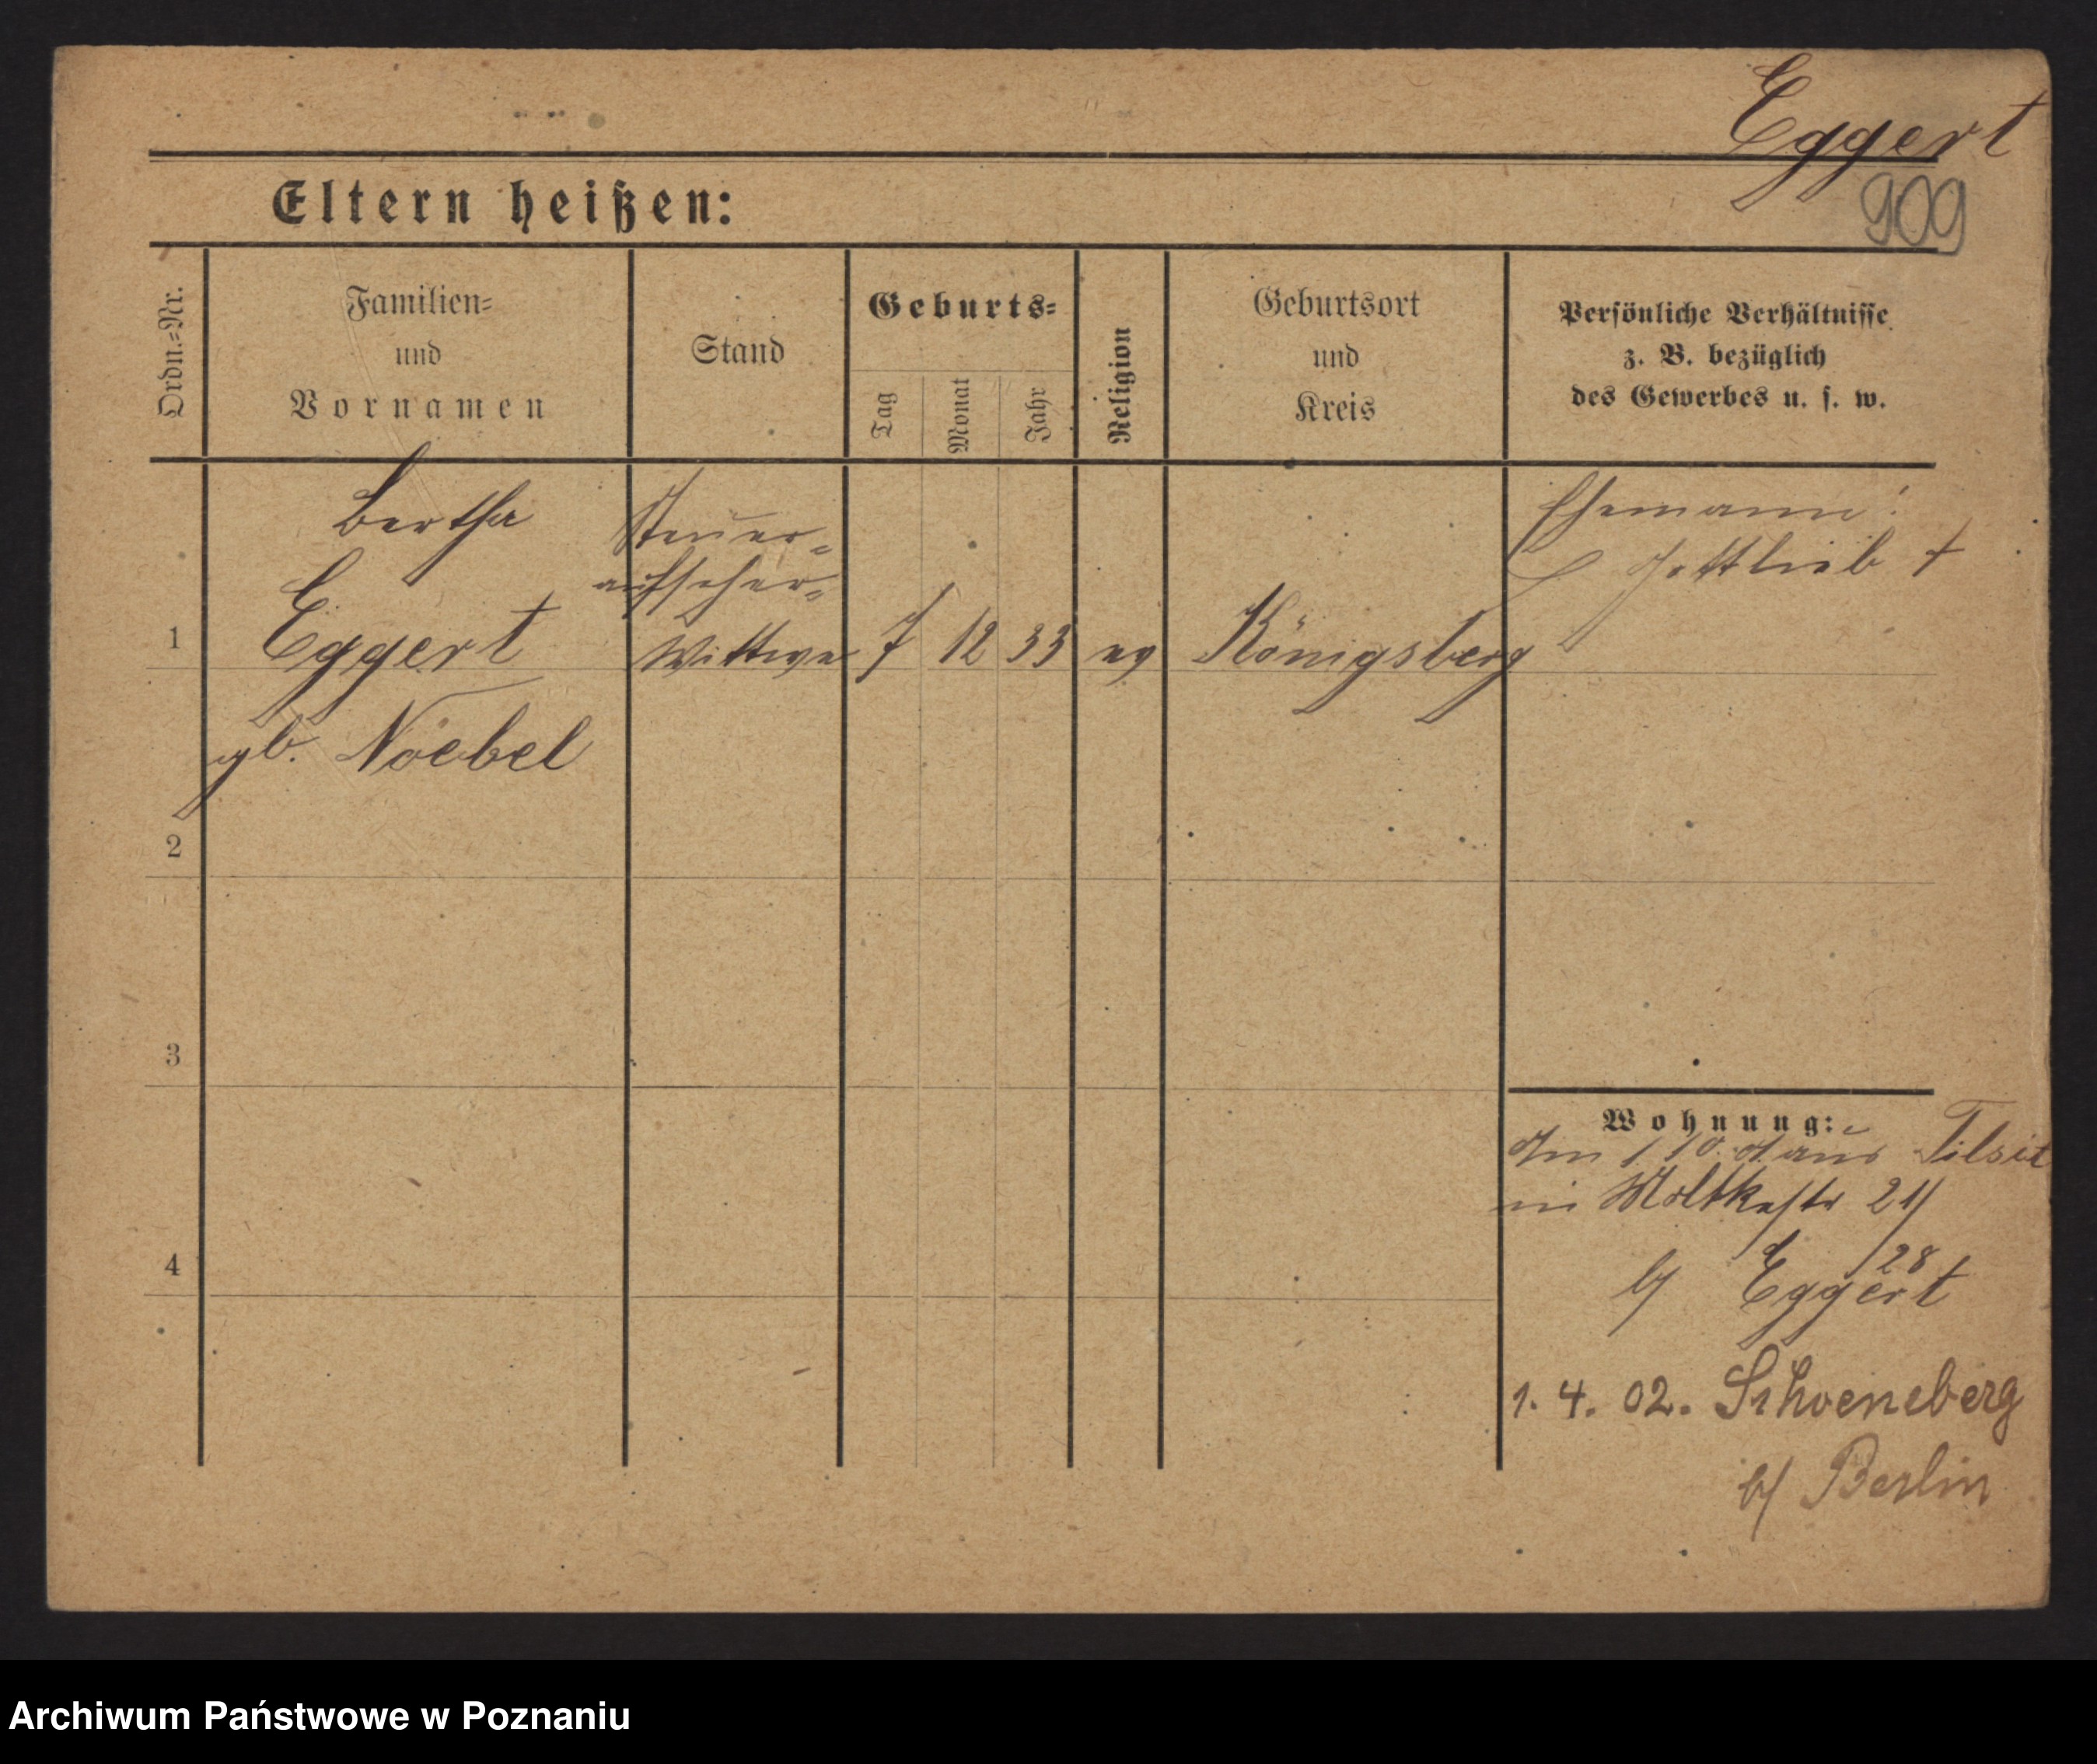 Eggert
909
Eltern heißen:
Ordn.=Nr.
Familien=
und
Vornamen
Stand
Geburts=
Tag
Monat
Jahr
Religion
Geburtsort
und
Kreis
Persönliche Verhältnisse
z. B. bezüglich
des Gewerbes u. s. w.
1
Bertha
Eggert
gb. Noebel
Steuer=
aufseher=
Wittwe
7
12
33
ev
Königsberg
Ehemann:
Gottlieb †
2
3
4
Wohnung:
aus Tilsit
in Moltkestr 21/
28
b/ Eggert
1. 4. 02. Schoeneberg
b/ Berlin
Archiwum Państwowe w Poznaniu